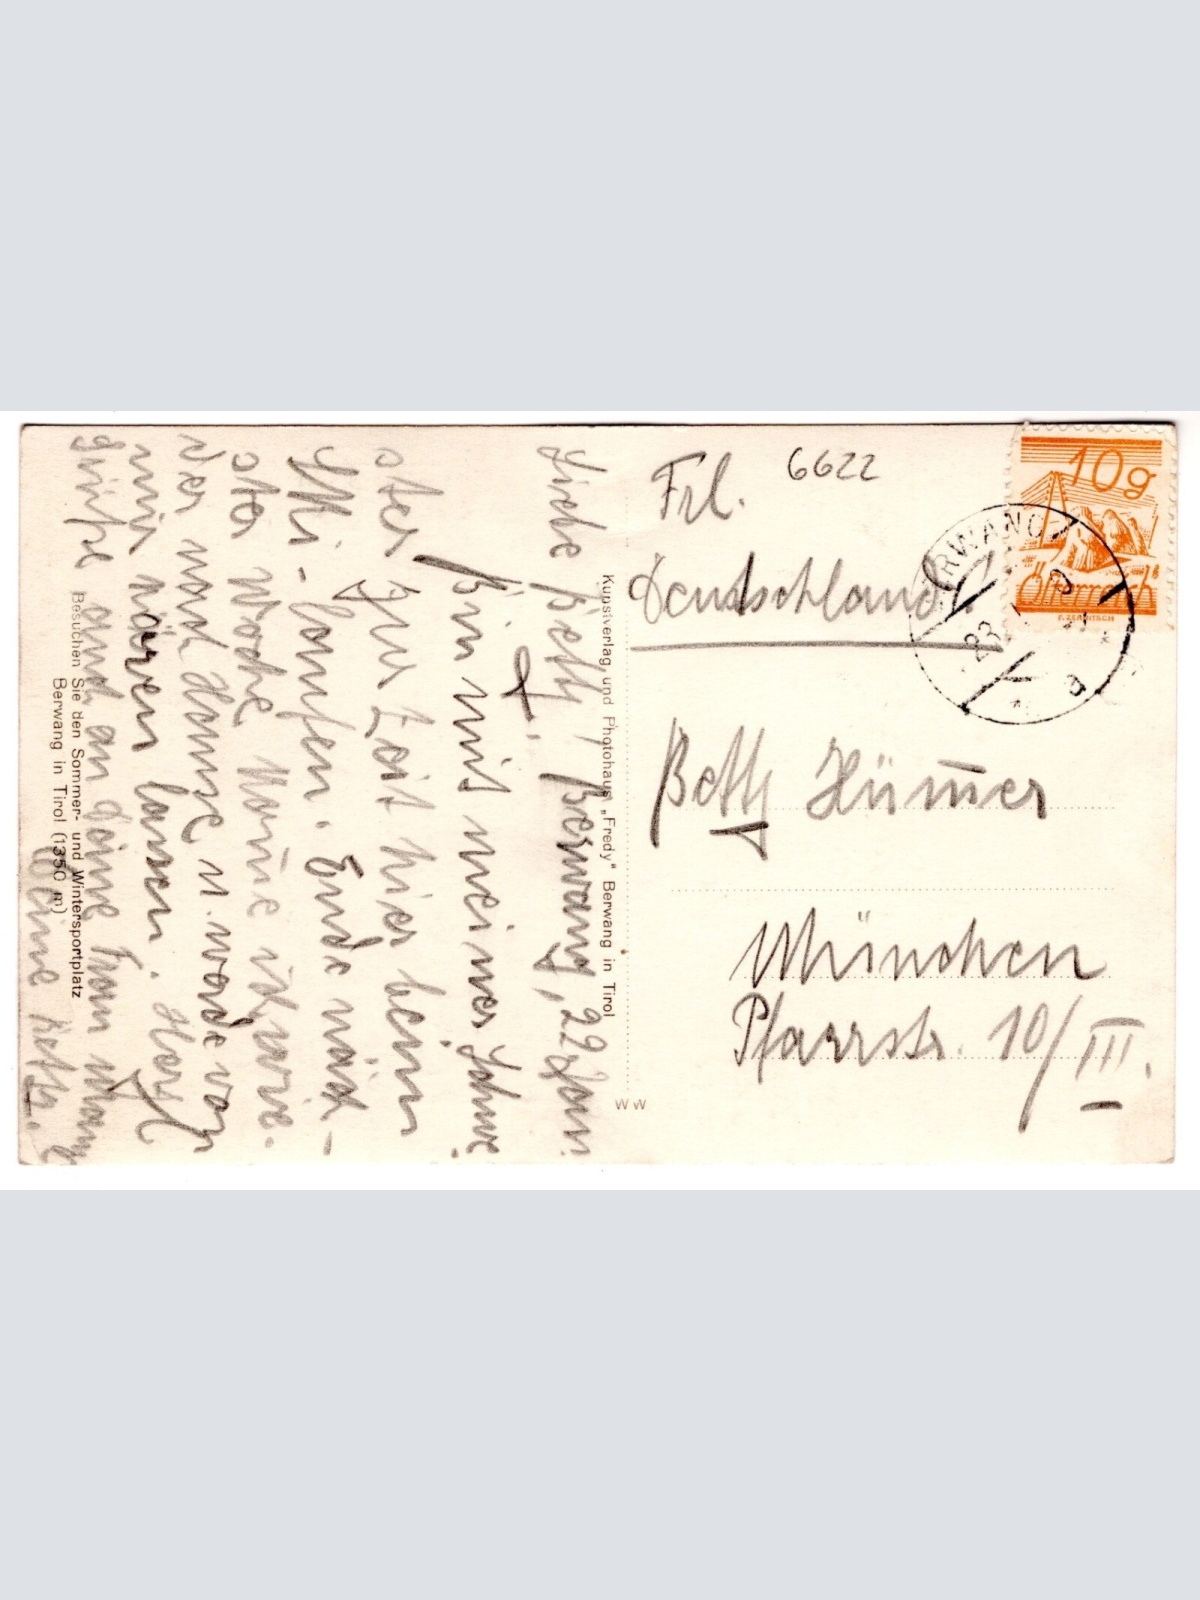 Berwang, 22 Jan.
Liebe Betty!
Bin mit meiner Schwe-
ster zur Zeit hier beim
Ski-laufen. Ende näch-
ster Woche komme ich wie-
der nach Hause u. werde von
mir hören lassen. Herzl.
Grüße auch an Deine Frau Mama
Deine Betty.
Besuchen Sie den Sommer- und Wintersportplatz
Berwang in Tirol (1350 m)
Kunstverlag und Photohaus „Fredy“ Berwang in Tirol
W W
6622
Frl.
Deutschland!
Betty Hümer
München
Pfarrstr. 10/III.
10g
Österreich
BERWANG
23
a